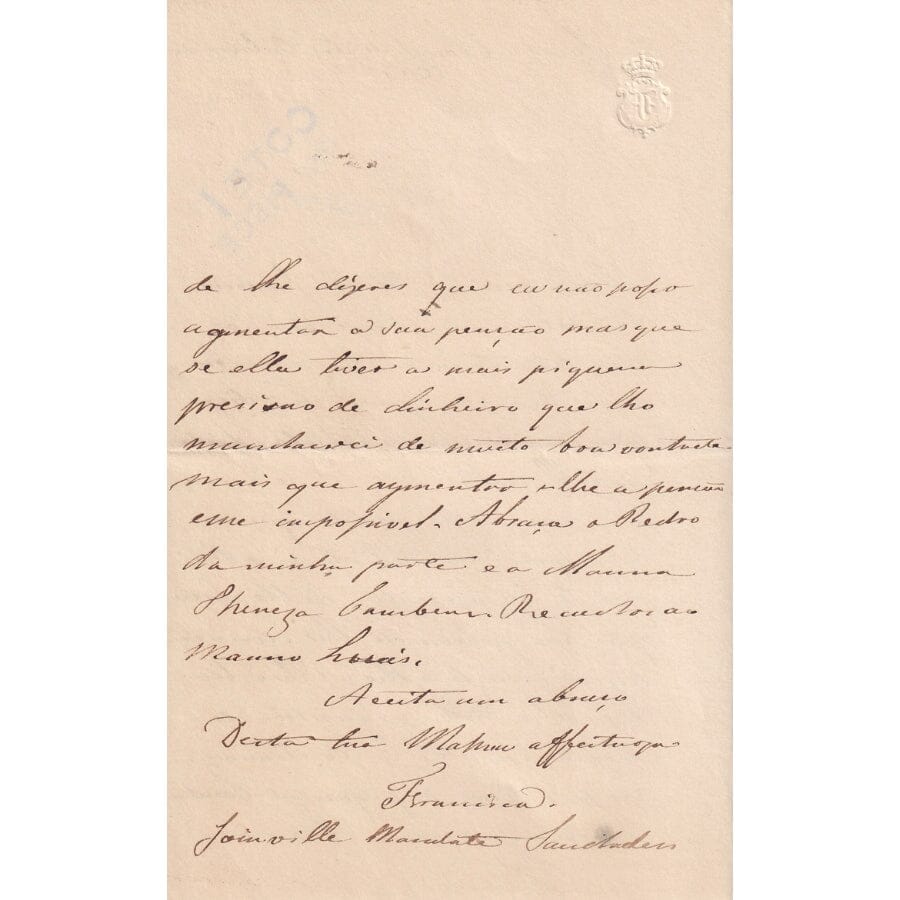 de lhe dizeres que eu não posso
augmentar a sua penção mas que
se ella tiver a mais piquena
presizao de dinheiro que lho
mandarei de muito boa vontade.
mais que aumentar-lhe a penção
é me impossivel. Abraça o Pedro
da minha parte e a Manna
Thereza tambem. Recados ao
Manno Luis.
Aceita um abraço
Desta tua Manna affectuoza
Francisca.
Joinville Mandate Saudades